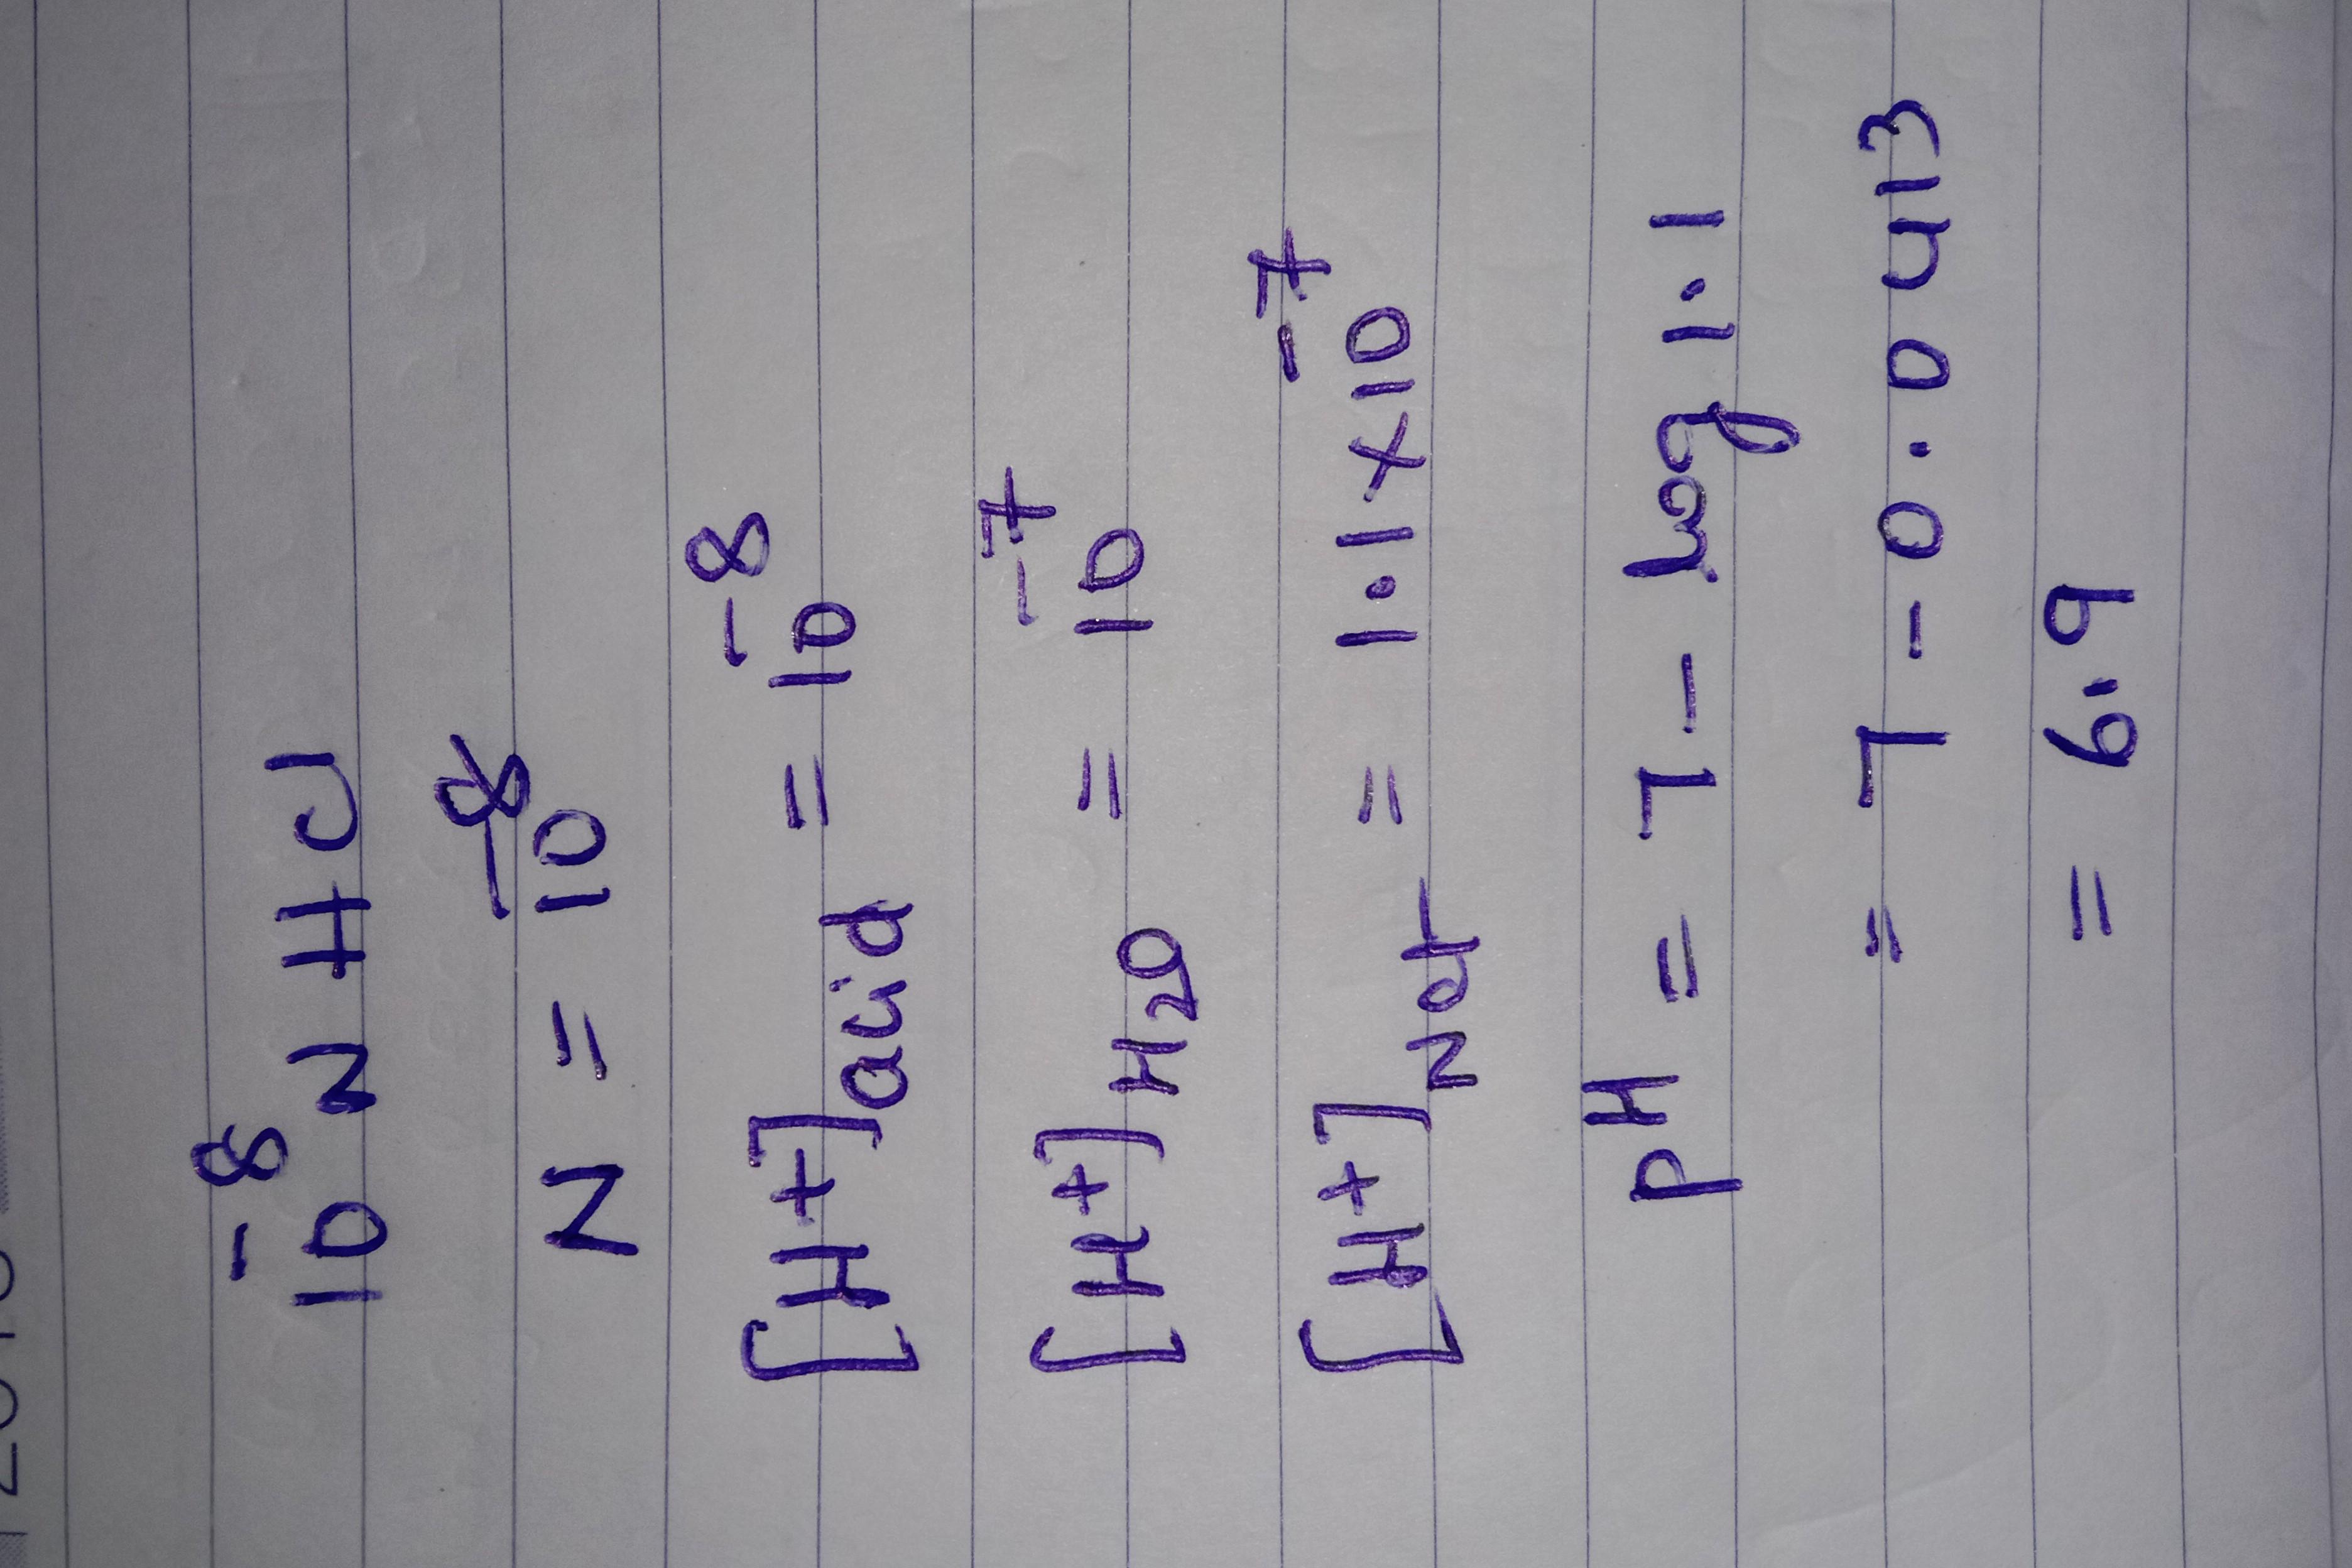 10⁻⁸ N HCl
N = 10⁻⁸
[H+]acid = 10⁻⁸
[H+]H₂O = 10⁻⁷
[H+]Net = 1.1×10⁻⁷
pH = 7 - log 1.1
= 7 - 0.0413
= 6.9